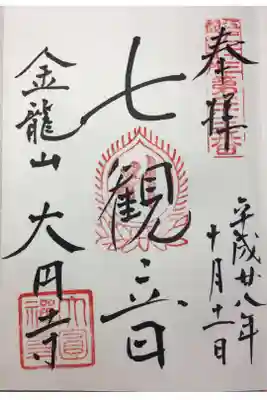 奉拝
平成廿八年
十月十一日
七観音
金龍山 大円寺